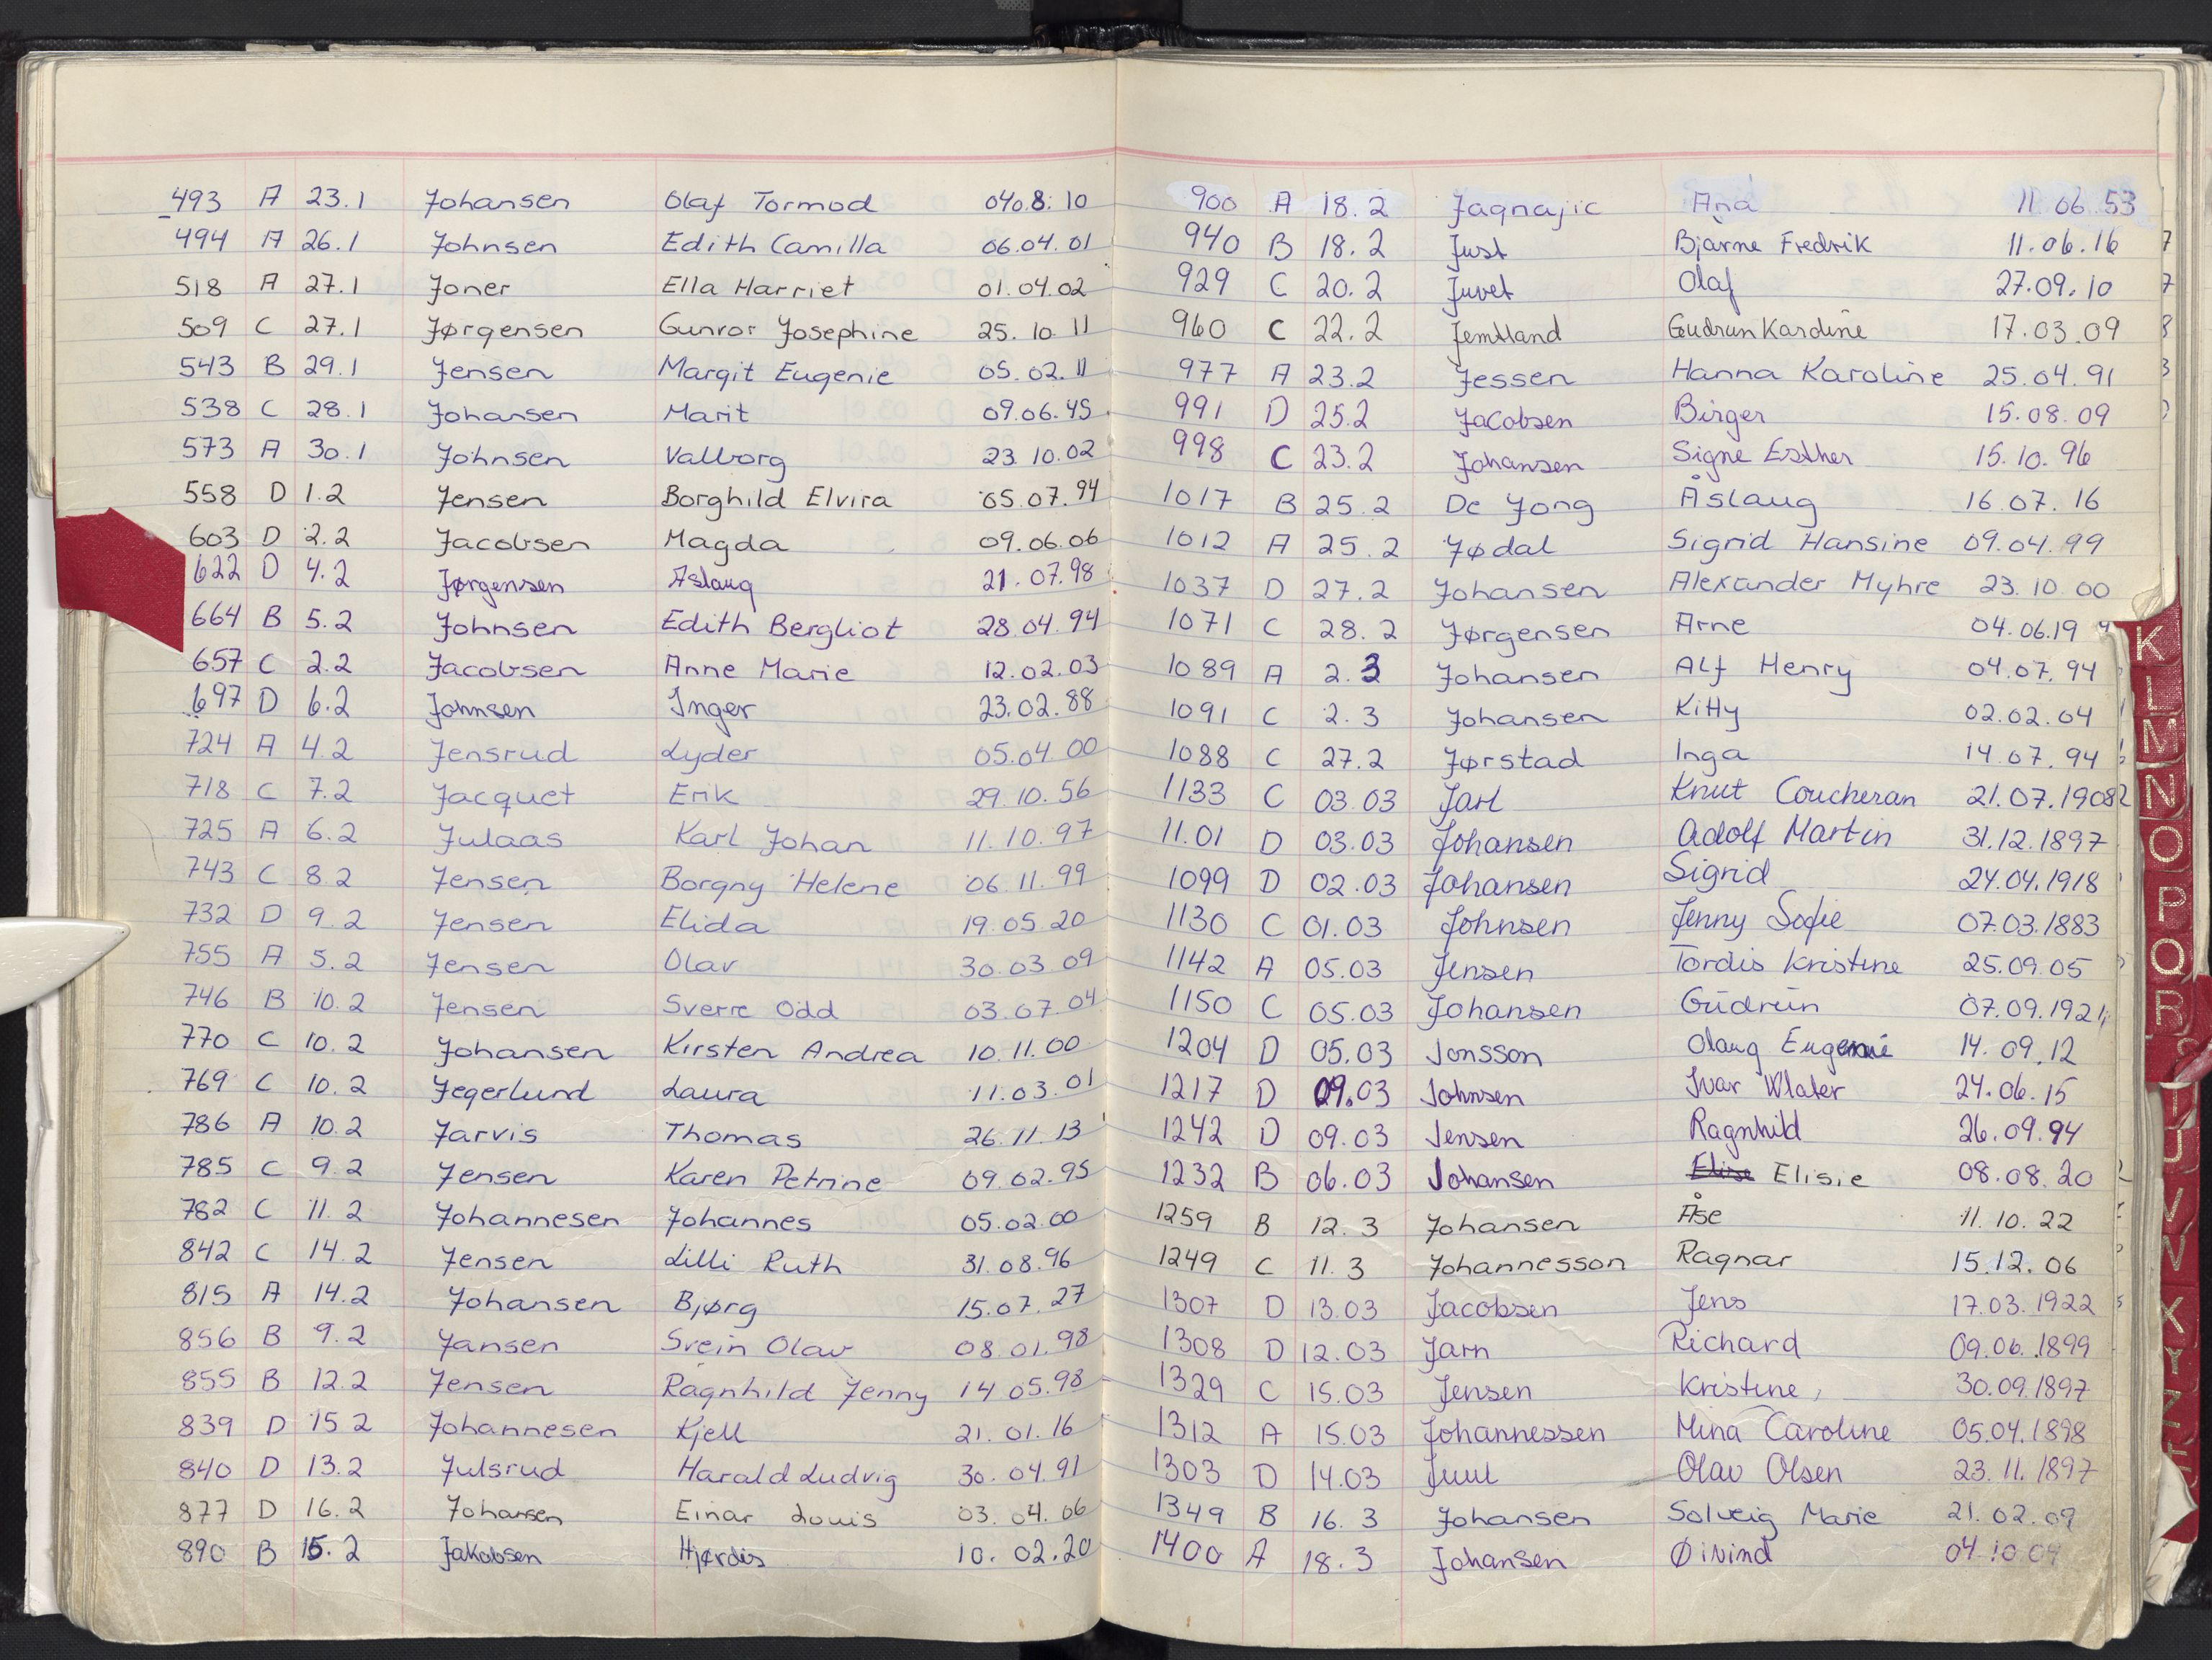 493 A 23.1 Johansen Olaf Tormod 040.8.10
494 A 26.1 Johnsen Edith Camilla 06.04.01
518 A 27.1 Joner Ella Harriet 01.04.02
509 C 27.1 Jørgensen Gunvor Josephine 25.10.11
543 B 29.1 Jensen Margit Eugenie 05.02.11
538 C 28.1 Johansen Marit 09.06.45
573 A 30.1 Johnsen Valborg 23.10.02
558 D 1.2 Jensen Borghild Elvira 05.07.94
603 D 2.2 Jacobsen Magda 09.06.06
622 D 4.2 Jørgensen Aslaug 21.07.98
664 B 5.2 Johnsen Edith Bergliot 28.04.94
657 C 2.2 Jacobsen Anne Marie 12.02.03
697 D 6.2 Johnsen Inger 23.02.88
724 A 4.2 Jensrud Lyder 05.04.00
718 C 7.2 Jacquet Erik 29.10.56
725 A 6.2 Julaas Karl Johan 11.10.97
743 C 8.2 Jensen Borgny Helene 06.11.99
732 D 9.2 Jensen Elida 19.05.20
755 A 5.2 Jensen Olav 30.03.09
746 B 10.2 Jensen Sverre Odd 03.07.04
770 C 10.2 Johansen Kirsten Andrea 10.11.00
769 C 10.2 Jegerlund Laura 11.03.01
786 A 10.2 Jarvis Thomas 26.11.13
785 C 9.2 Jensen Karen Petrine 09.02.95
782 C 11.2 Johannesen Johannes 05.02.00
842 C 14.2 Jensen Lilli Ruth 31.08.96
815 A 14.2 Johansen Bjørg 15.07.27
856 B 9.2 Jansen Svein Olav 08.01.98
855 B 12.2 Jensen Ragnhild Jenny 14.05.98
839 D 15.2 Johannesen Kjell 21.01.16
840 D 13.2 Julsrud Harald Ludvig 30.04.91
877 D 16.2 Johansen Einar Louis 03.04.06
890 B 15.2 Jakobsen Hjørdis 10.02.20
900 A 18.2 Jagnajic Ana 11.06.53
940 B 18.2 Just Bjarne Fredrik 11.06.16
929 C 20.2 Juvet Olaf 27.09.10
960 C 22.2 Jemtland Gudrun Karoline 17.03.09
977 A 23.2 Jessen Hanna Karoline 25.04.91
991 D 25.2 Jacobsen Birger 15.08.09
998 C 23.2 Johansen Signe Esther 15.10.96
1017 B 25.2 De Jong Åslaug 16.07.16
1012 A 25.2 Jødal Sigrid Hansine 09.04.99
1037 D 27.2 Johansen Alexander Myhre 23.10.00
1071 C 28.2 Jørgensen Arne 04.06.19
1089 A 2.3 Johansen Alf Henry 04.07.94
1091 C 2.3 Johansen Kitty 02.02.04
1088 C 27.2 Jørstad Inga 14.07.94
1133 C 03.03 Jarl Knut Coucheran 21.07.1908
11.01 D 03.03 Johansen Adolf Martin 31.12.1897
1099 D 02.03 Johansen Sigrid 24.04.1918
1130 C 01.03 Johnsen Jenny Sofie 07.03.1883
1142 A 05.03 Jensen Tordis Kristine 25.09.05
1150 C 05.03 Johansen Gudrun 07.09.1921
1204 D 05.03 Jonsson Olaug Eugenie 14.09.12
1217 D 09.03 Johnsen Ivar Wlater 24.06.15
1242 D 09.03 Jensen Ragnhild 26.09.94
1232 B 06.03 Johansen Elise Elisie 08.08.20
1259 B 12.3 Johansen Åse 11.10.22
1249 C 11.3 Johannesson Ragnar 15.12.06
1307 D 13.03 Jacobsen Jens 17.03.1922
1308 D 12.03 Jarn Richard 09.06.1899
1329 C 15.03 Jensen Kristine, 30.09.1897
1312 A 15.03 Johannessen Mina Caroline 05.04.1898
1303 D 14.03 Juul Olav Olsen 23.11.1897
1349 B 16.3 Johansen Solveig Marie 21.02.09
1400 A 18.3 Johansen Øivind 04.10.04
K
L
M
N
O
P
Q
R
T
U
V
W
X
Y
Z